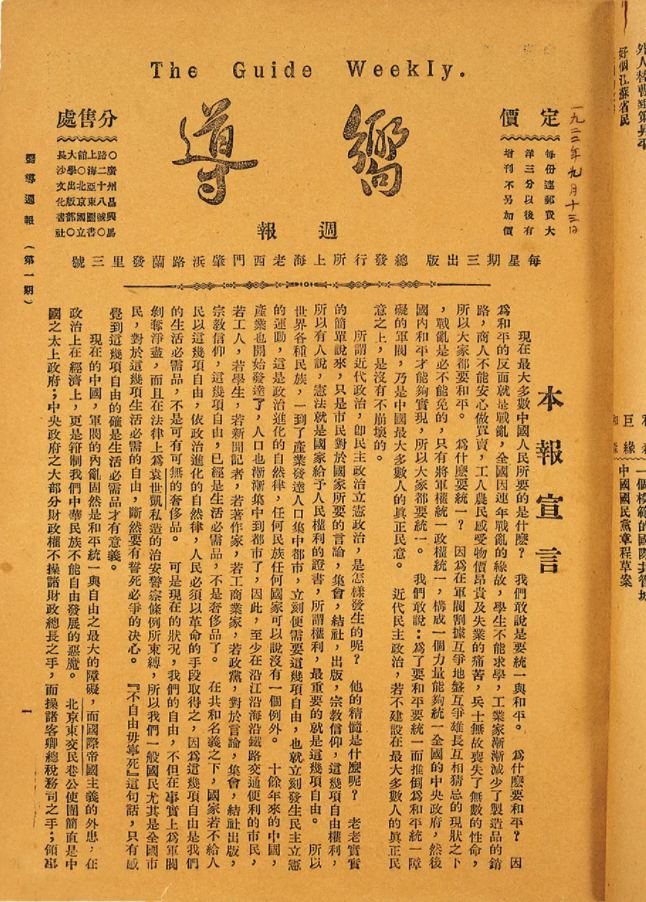 The Guide Weekly.
嚮導
週報
定價
每份連郵費大
洋三分以後有
增刊不另加價
一九二二年九月十三日
分售處
○廣州昌興馬
路二十八號○
上海亞東圖書
館○北京國立
大學出版部○
長沙文化書社
每星期三出版 總發行所上海老西門肇浜路蘭發里三號
本報宣言
現在最大多數中國人民所要的是什麼？ 我們敢說是要統一與和平。 爲什麼要和平？ 因
爲和平的反面就是戰亂，全國因連年戰亂的緣故，學生不能求學，工業家漸漸減少了製造品的銷
路，商人不能安心做買賣，工人農民感受物價昂貴及失業的痛苦，兵士無故喪失了無數的性命，
所以大家都要和平。 爲什麼要統一？ 因爲在軍閥割據互爭地盤互爭雄長互相猜忌的現狀之下
，戰亂是必不能免的，只有將軍權統一政權統一，構成一個力量能夠統一全國的中央政府，然後
國內和平才能夠實現，所以大家都要統一。 我們敢說：爲了要和平要統一而推倒爲和平統一障
礙的軍閥，乃是中國最大多數人的眞正民意。 近代民主政治，若不建設在最大多數人的眞正民
意之上，是沒有不崩壞的。
所謂近代政治，卽民主政治立憲政治，是怎樣發生的呢？ 他的精髓是什麼呢？ 老老實實
的簡單說來，只是市民對於國家所要的言論，集會，結社，出版，宗教信仰，這幾項自由權利，
所以有人說，憲法就是國家給予人民權利的證書，所謂權利，最重要的就是這幾項自由。 所以
世界各種民族，一到了產業發達人口集中都市，立刻便需要這幾項自由，也就立刻發生民主立憲
的運動，這是政治進化的自然律，任何民族任何國家可以說沒有一個例外。 十餘年來的中國，
產業也開始發達了，人口也漸漸集中到都市了，因此，至少在沿江沿海沿鐵路交通便利的市民，
若工人，若學生，若新聞記者，若著作家，若工商業家，若政黨，對於言論，集會，結社出版，
宗教信仰，這幾項自由，已經是生活必需品，不是奢侈品了。 在共和名義之下，國家若不給人
民以這幾項自由，依政治進化的自然律，人民必須以革命的手段取得之，因爲這幾項自由是我們
的生活必需品，不是可有可無的奢侈品。 可是現在的狀況，我們的自由，不但在事實上爲軍閥
剝奪淨盡，而且在法律上爲袁世凱私造的治安警察條例所束縛，所以我們一般國民尤其是全國市
民，對於這幾項生活必需的自由，斷然要有誓死必爭的決心。 『不自由毋寧死』這句話，只有感
覺到這幾項自由的確是生活必需品才有意義。
現在的中國，軍閥的內亂固然是和平統一與自由之最大的障礙，而國際帝國主義的外患，在
政治上在經濟上，更是箝制我們中華民族不能自由發展的惡魔。 北京東交民巷公使團簡直是中
國之太上政府；中央政府之大部分財政權不操諸財政總長之手，而操諸客卿總稅務司之手；領事
嚮導週報 （第一期）
一
好個江蘇省民
一個模範的國際共管城
中國國民黨章程草案